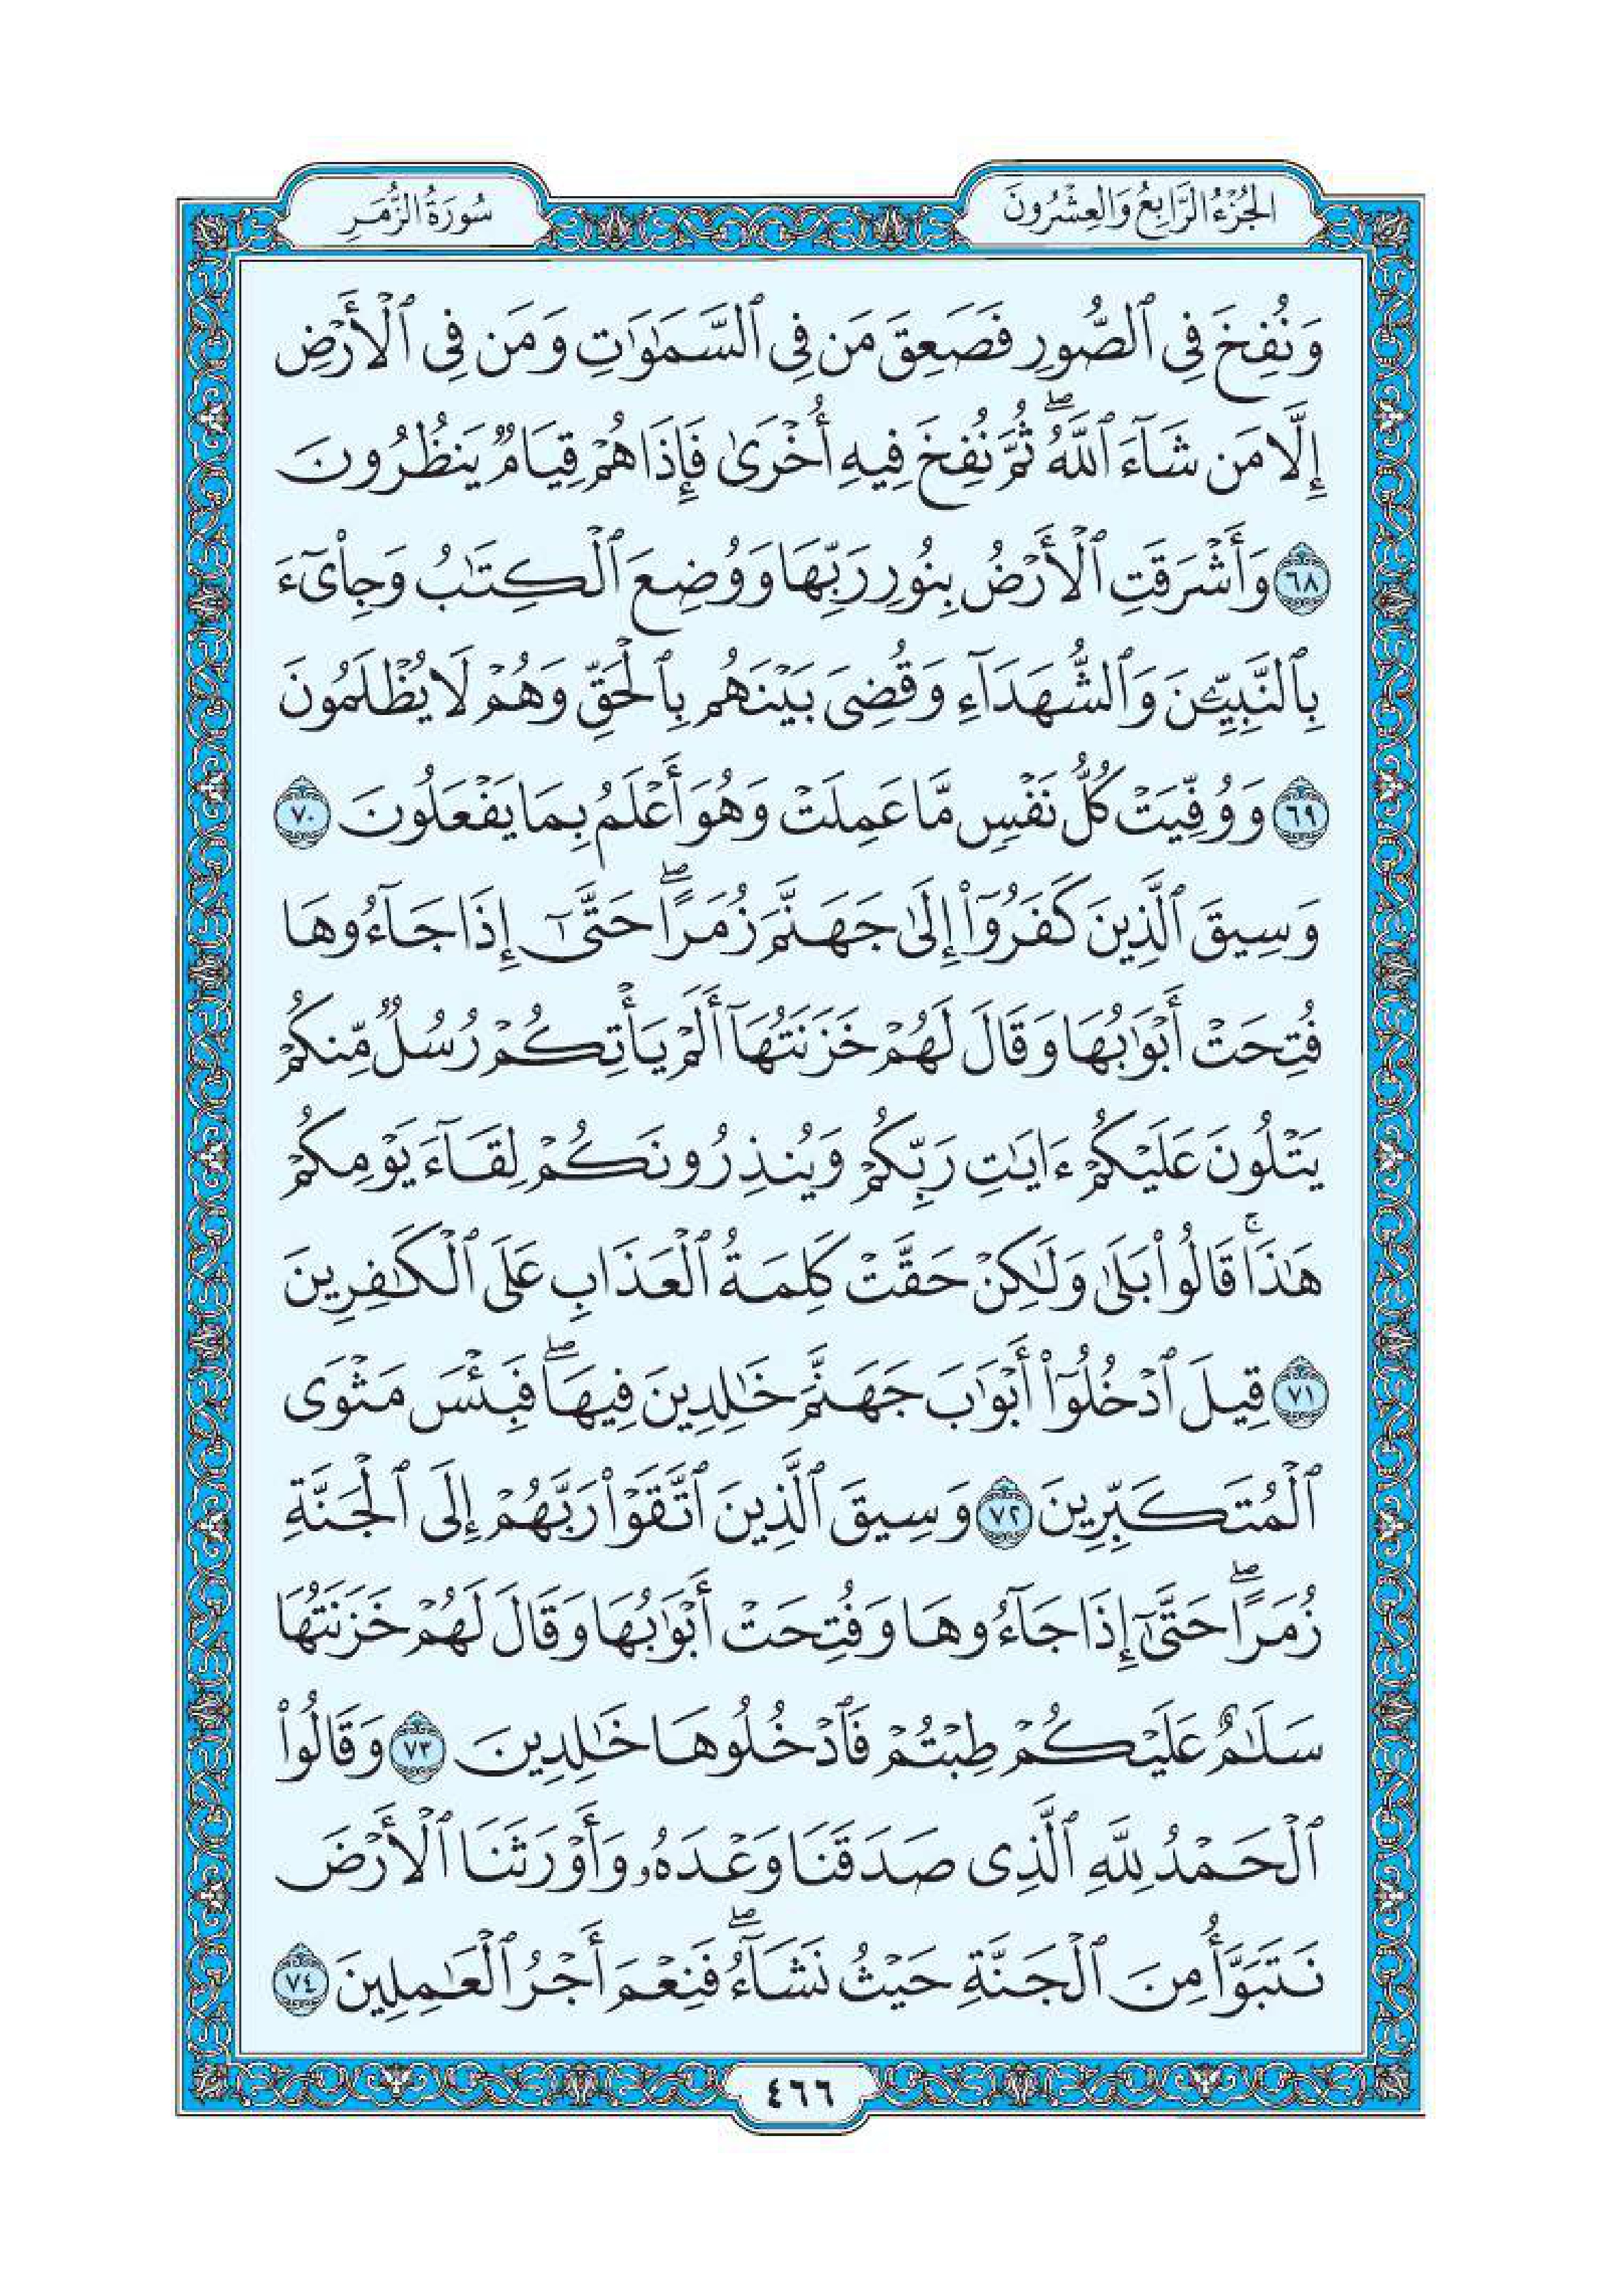 الجُزْءُ الرَّابِعُ وَالعِشْرُونَ
سُورَةُ الزُّمَرِ
وَنُفِخَ فِى ٱلصُّورِ فَصَعِقَ مَن فِى ٱلسَّمَٰوَٰتِ وَمَن فِى ٱلْأَرْضِ
إِلَّا مَن شَآءَ ٱللَّهُ ۖ ثُمَّ نُفِخَ فِيهِ أُخْرَىٰ فَإِذَا هُمْ قِيَامٌ يَنظُرُونَ
٦٨ وَأَشْرَقَتِ ٱلْأَرْضُ بِنُورِ رَبِّهَا وَوُضِعَ ٱلْكِتَٰبُ وَجِا۟ىٓءَ
بِٱلنَّبِيِّۦنَ وَٱلشُّهَدَآءِ وَقُضِىَ بَيْنَهُم بِٱلْحَقِّ وَهُمْ لَا يُظْلَمُونَ
٦٩ وَوُفِّيَتْ كُلُّ نَفْسٍ مَّا عَمِلَتْ وَهُوَ أَعْلَمُ بِمَا يَفْعَلُونَ ٧٠
وَسِيقَ ٱلَّذِينَ كَفَرُوٓا۟ إِلَىٰ جَهَنَّمَ زُمَرًا ۖ حَتَّىٰٓ إِذَا جَآءُوهَا
فُتِحَتْ أَبْوَٰبُهَا وَقَالَ لَهُمْ خَزَنَتُهَآ أَلَمْ يَأْتِكُمْ رُسُلٌ مِّنكُمْ
يَتْلُونَ عَلَيْكُمْ ءَايَٰتِ رَبِّكُمْ وَيُنذِرُونَكُمْ لِقَآءَ يَوْمِكُمْ
هَٰذَا ۚ قَالُوا۟ بَلَىٰ وَلَٰكِنْ حَقَّتْ كَلِمَةُ ٱلْعَذَابِ عَلَى ٱلْكَٰفِرِينَ
٧١ قِيلَ ٱدْخُلُوٓا۟ أَبْوَٰبَ جَهَنَّمَ خَٰلِدِينَ فِيهَا ۖ فَبِئْسَ مَثْوَى
ٱلْمُتَكَبِّرِينَ ٧٢ وَسِيقَ ٱلَّذِينَ ٱتَّقَوْا۟ رَبَّهُمْ إِلَى ٱلْجَنَّةِ
زُمَرًا ۖ حَتَّىٰٓ إِذَا جَآءُوهَا وَفُتِحَتْ أَبْوَٰبُهَا وَقَالَ لَهُمْ خَزَنَتُهَا
سَلَٰمٌ عَلَيْكُمْ طِبْتُمْ فَٱدْخُلُوهَا خَٰلِدِينَ ٧٣ وَقَالُوا۟
ٱلْحَمْدُ لِلَّهِ ٱلَّذِى صَدَقَنَا وَعْدَهُۥ وَأَوْرَثَنَا ٱلْأَرْضَ
نَتَبَوَّأُ مِنَ ٱلْجَنَّةِ حَيْثُ نَشَآءُ ۖ فَنِعْمَ أَجْرُ ٱلْعَٰمِلِينَ ٧٤
٤٦٦